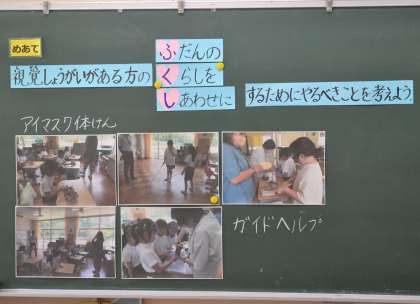 めあて
視覚しょうがいがある方の
ふだんの
くらしを
しあわせに
するためにやるべきことを考えよう
アイマスク体けん
ガイドヘルプ